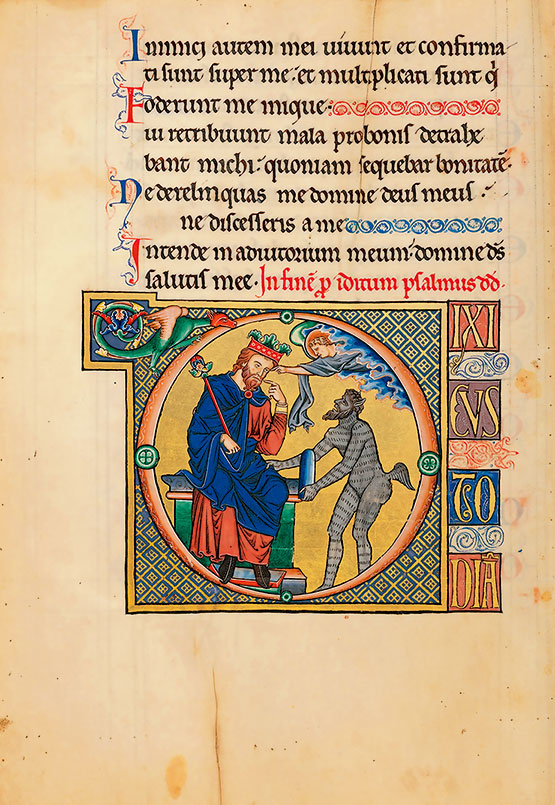 Inimicj autem mei uiuunt et confirma
ti sunt super me: et multiplicati sunt qͥ
Foderunt me inique·
ui retribuunt mala pro bonis detrahe
bant michi: quoniam sequebar bonitatē·
Ne derelinquas me domine deus meus·
ne discesseris a me
Intende in adiutorium meum: domine dс̄
salutis mee. In finē p̱ iditum psalmus dd·
D IXI
CUS
TO
DIĀ